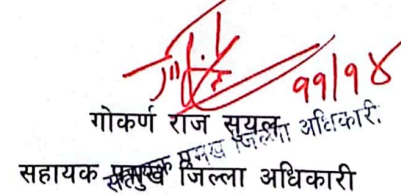 ११/१४
गोकर्ण राज सुयल
सहायक प्रमुख जिल्ला अधिकारी
सहायक प्रमुख जिल्ला अधिकारी